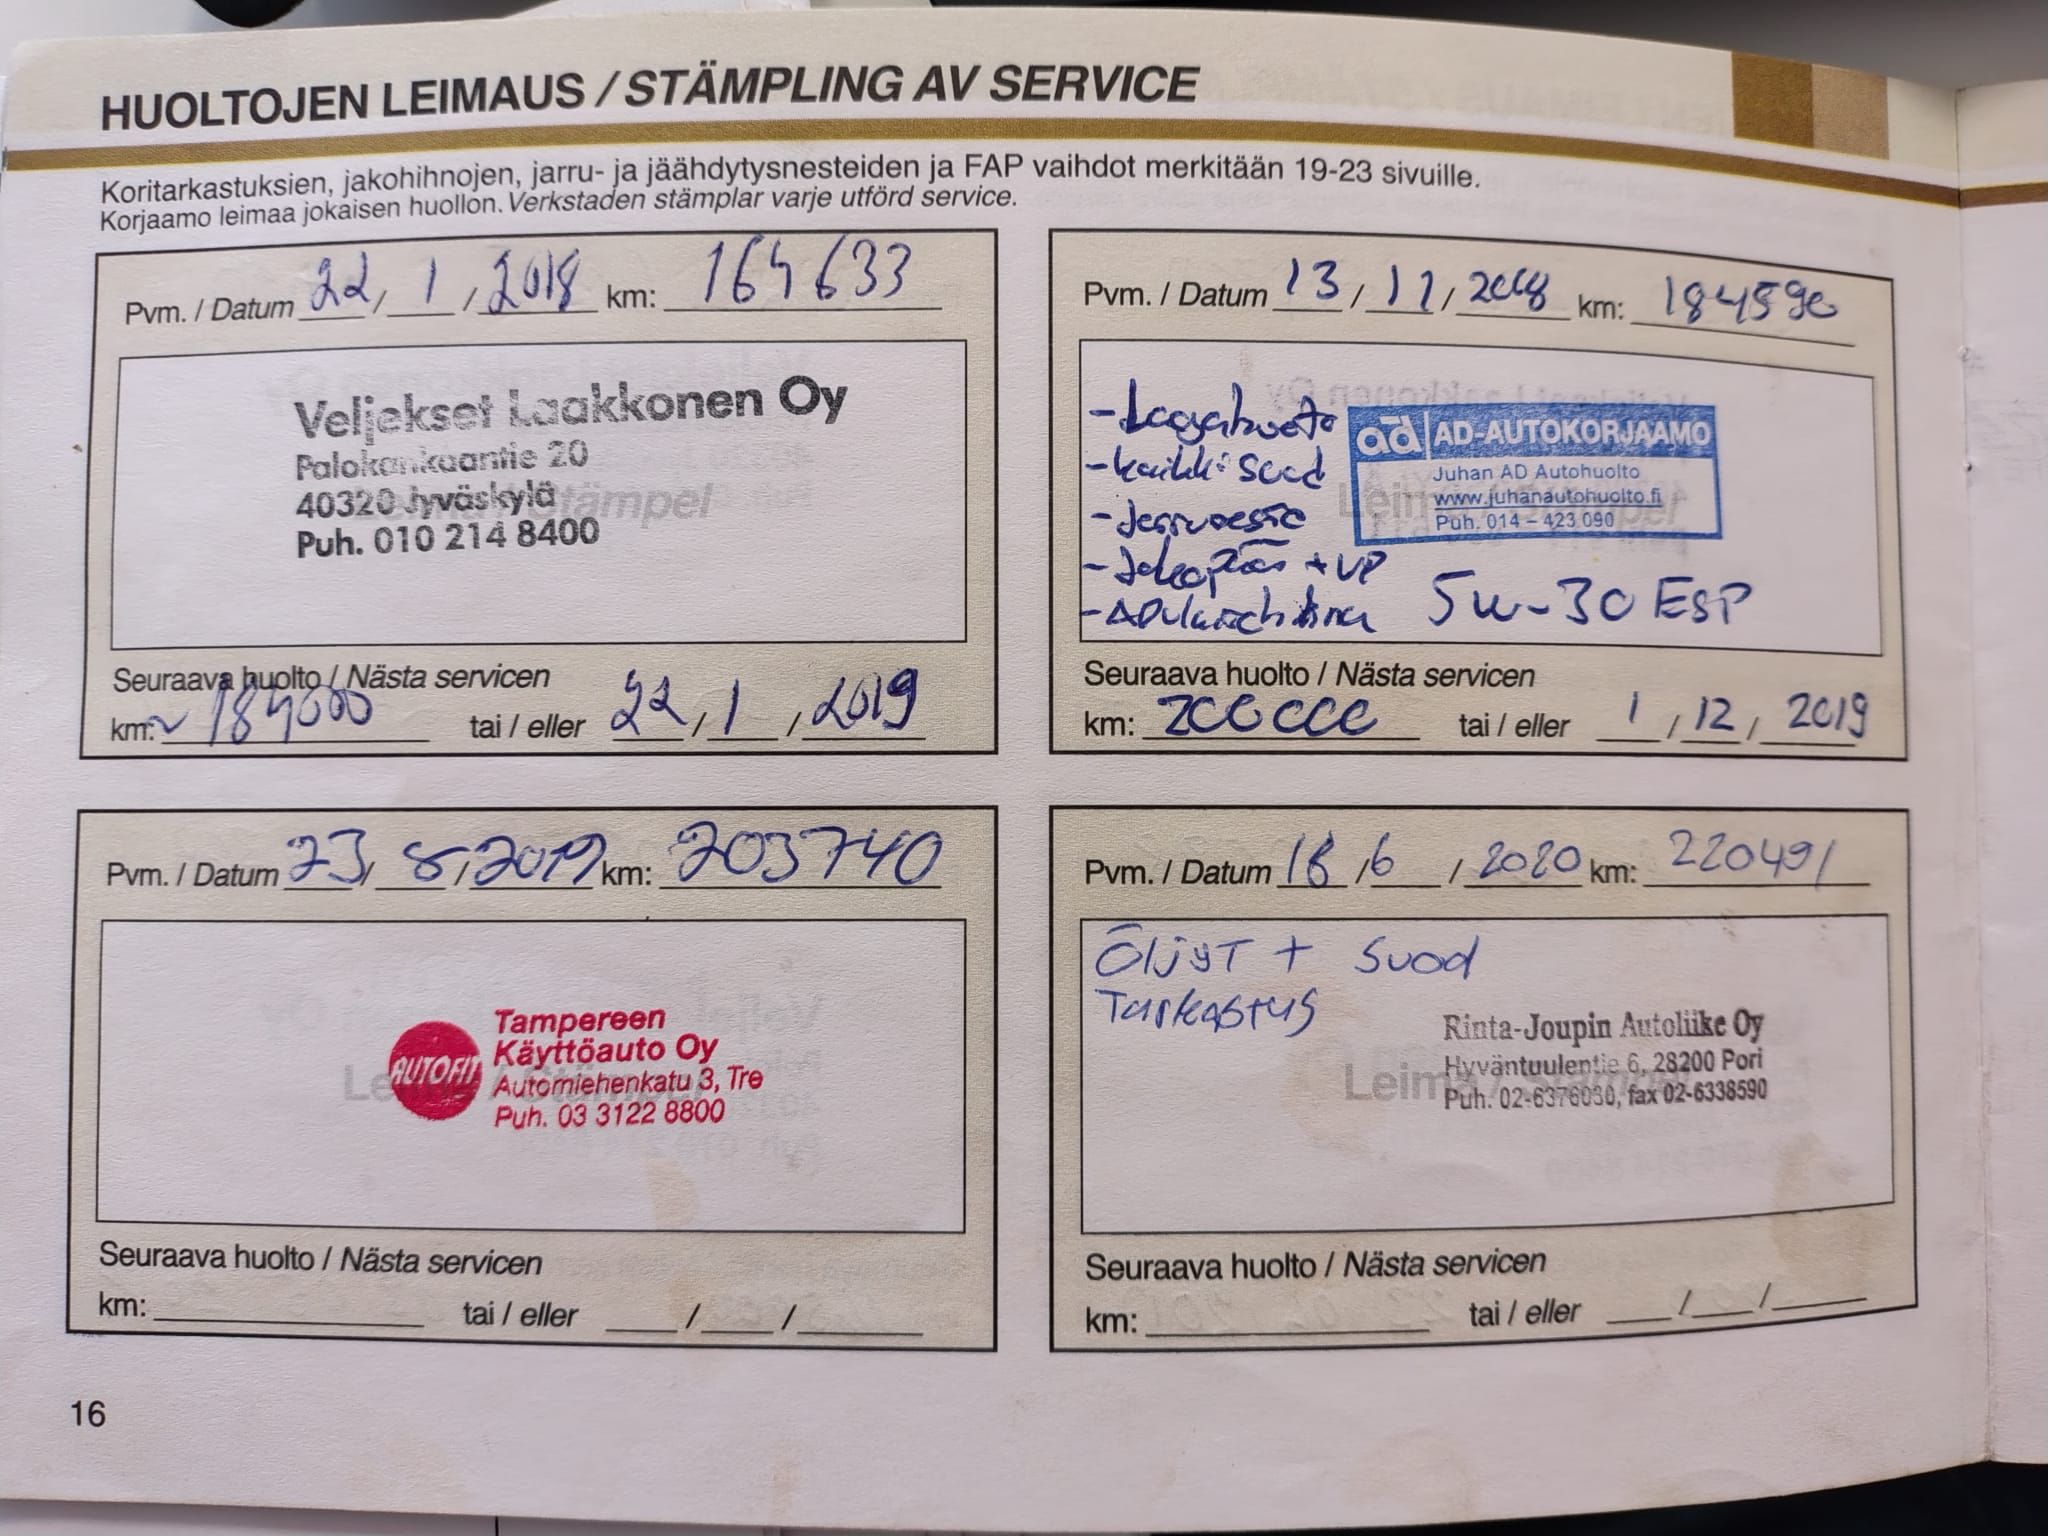 HUOLTOJEN LEIMAUS / STÄMPLING AV SERVICE
Koritarkastuksien, jakohihnojen, jarru- ja jäähdytysnesteiden ja FAP vaihdot merkitään 19-23 sivuille.
Korjaamo leimaa jokaisen huollon. Verkstaden stämplar varje utförd service.
Pvm. / Datum 22 / 1 / 2018 km: 164 633
Veljekset Laakkonen Oy
Palokankaantie 20
40320 Jyväskylä
Puh. 010 214 8400
Leima / Stämpel
Seuraava huolto / Nästa servicen
km: ~ 184000 tai / eller 22 / 1 / 2019
Pvm. / Datum 13 / 11 / 2018 km: 184590
- kaikki suod
- Jarruneste
+ VP
5W-30 ESP
ad AD-AUTOKORJAAMO
Juhan AD Autohuolto
www.juhanautohuolto.fi
Puh. 014 - 423 090
Leima / Stämpel
Seuraava huolto / Nästa servicen
km: 200000 tai / eller 1 / 12 / 2019
Pvm. / Datum 23 / 8 / 2019 km: 203740
AUTOFIT
Tampereen
Käyttöauto Oy
Automiehenkatu 3, Tre
Puh. 03 3122 8800
Leima / Stämpel
Seuraava huolto / Nästa servicen
km: tai / eller / /
Pvm. / Datum 18 / 6 / 2020 km: 220491
Öljyt + Suod
Tarkastus
Rinta-Joupin Autoliike Oy
Hyväntuulentie 6, 28200 Pori
Puh. 02-6376030, fax 02-6338590
Leima / Stämpel
Seuraava huolto / Nästa servicen
km: tai / eller / /
16